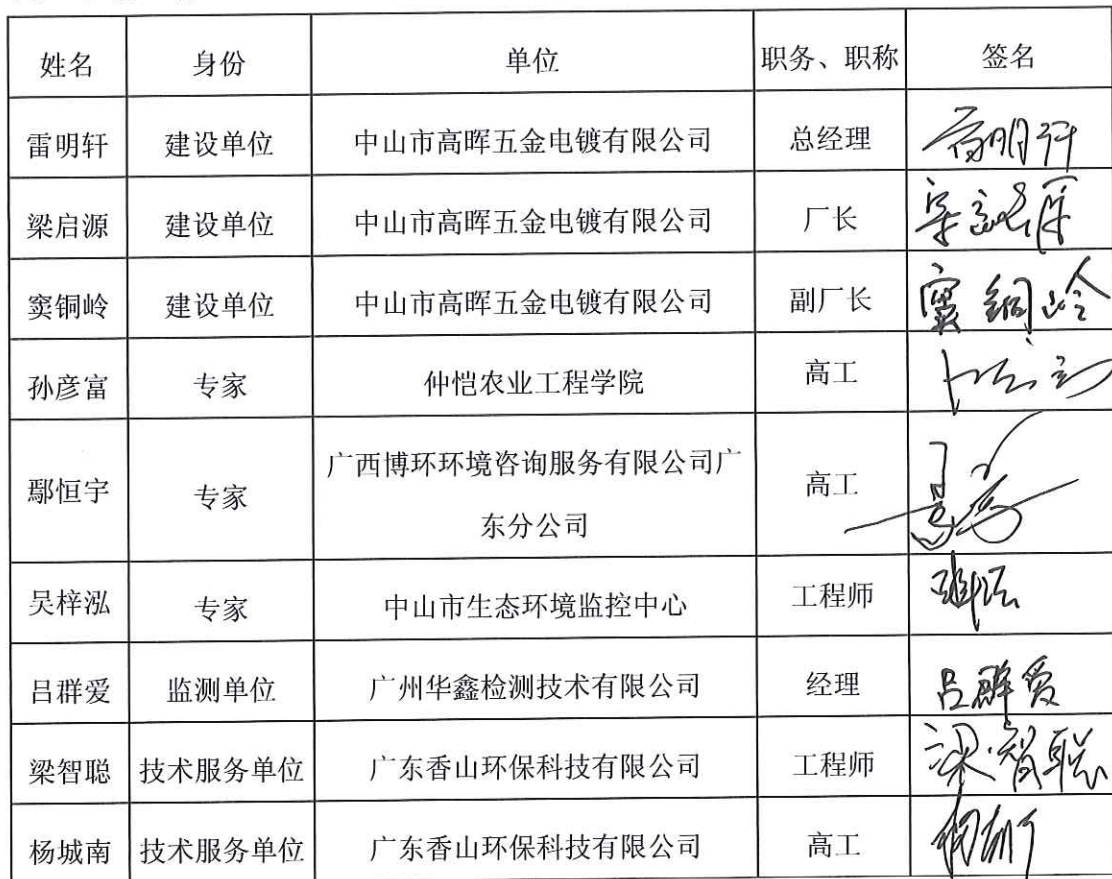 姓名 身份 单位 职务、职称 签名
雷明轩 建设单位 中山市高晖五金电镀有限公司 总经理
梁启源 建设单位 中山市高晖五金电镀有限公司 厂长
窦铜岭 建设单位 中山市高晖五金电镀有限公司 副厂长 窦铜岭
孙彦富 专家 仲恺农业工程学院 高工
鄢恒宇 专家 广西博环环境咨询服务有限公司广
东分公司 高工
吴梓泓 专家 中山市生态环境监控中心 工程师
吕群爱 监测单位 广州华鑫检测技术有限公司 经理 吕群爱
梁智聪 技术服务单位 广东香山环保科技有限公司 工程师 梁智聪
杨城南 技术服务单位 广东香山环保科技有限公司 高工